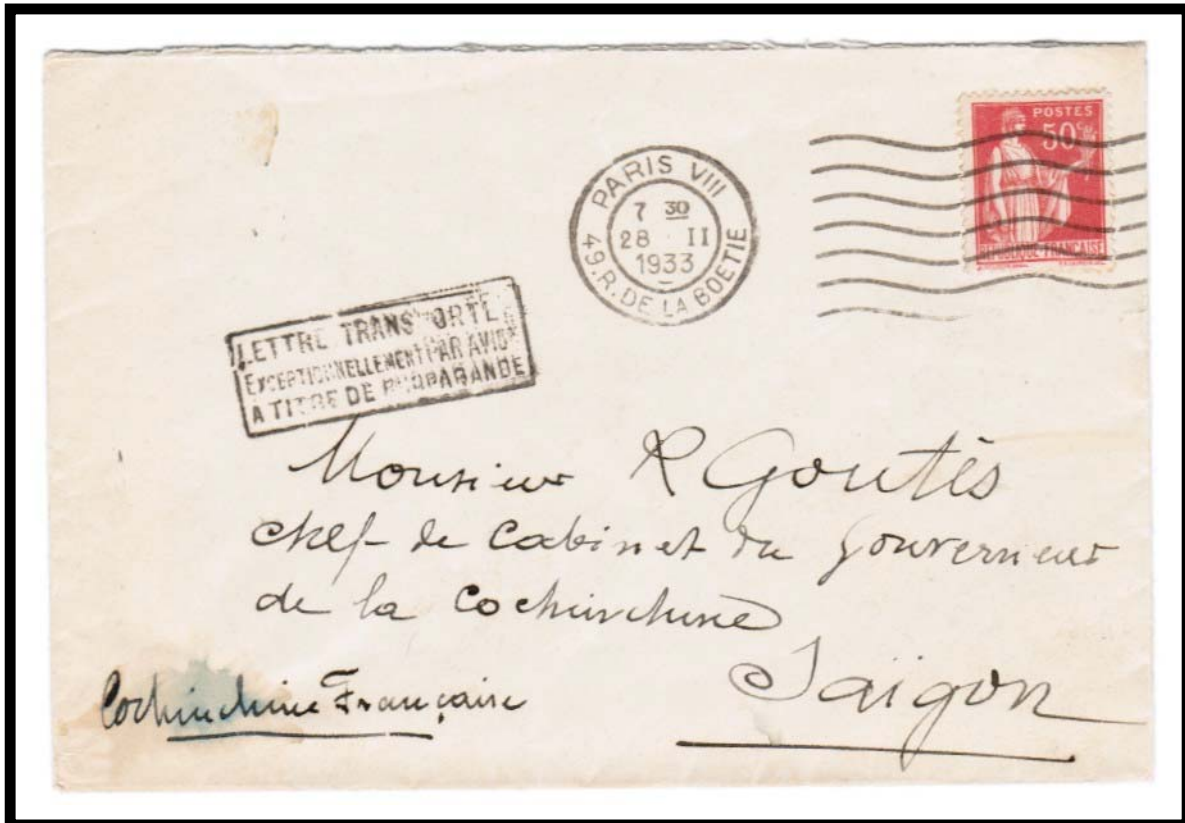 POSTES
50c
RÉPUBLIQUE FRANÇAISE
PARIS VIII
7 30
28 II
1933
49.R.DE LA BOETIE
LETTRE TRANSPORTÉE
EXCEPTIONNELLEMENT PAR AVION
A TITRE DE PROPAGANDE
Monsieur R Goutès
chef de Cabinet du Gouverneur
de la Cochinchine
Saïgon
Cochinchine Française